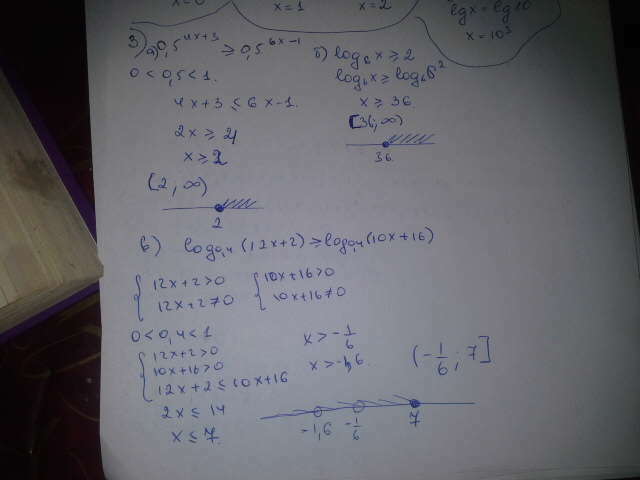 x=0
x=1
x=2
lgx=lg10
x=10³
3) а) 0,5^(4x+3) ≥ 0,5^(6x-1)
0<0,5<1.
4x+3 ≤ 6x-1.
2x ≥ 4
x ≥ 2
(2; ∞)
2
б) log₆x ≥ 2
log₆x ≥ log₆6²
x ≥ 36
[36; ∞)
36
в) log₀,₄(12x+2) ≥ log₀,₄(10x+16)
{12x+2>0
12x+2≠0
{10x+16>0
10x+16≠0
0<0,4<1
{12x+2>0
10x+16>0
12x+2 ≤ 10x+16
2x ≤ 14
x ≤ 7.
x > -1/6
x > -1,6.
(-1/6; 7]
-1,6 -1/6 7